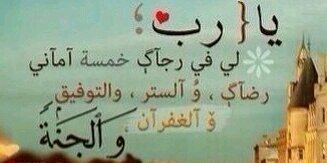 يا{ رب ؛
لي في رجآگ خمسة آمآني
رضآگ , وُ آلستر , والتوفيق
وٓ آلغفرآن ,
وَ الجَنةَ